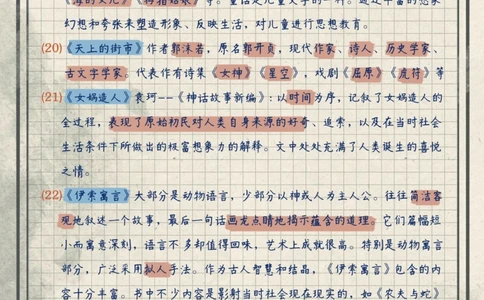 《海的女儿》《拇指姑娘》等。童话是儿童文学的一种。通过丰富的想象
幻想和夸张来塑造形象、反映生活，对儿童进行思想教育。
(20)《天上的街市》作者郭沫若，原名郭开贞，现代作家、诗人、历史学家、
古文字学家。代表作有诗集《女神》《星空》，戏剧《屈原》《虎符》等
(21)《女娲造人》袁珂--《神话故事新编》：以时间为序，记叙了女娲造人的
全过程，表现了原始初民对人类自身来源的好奇、追索，以及在当时社会
生活条件下所做出的极富想象力的解释。文中处处充满了人类诞生的喜悦
之情。
(22)《伊索寓言》大部分是动物语言，少部分以神或人为主人公。往往简洁客
观地叙述一个故事，最后一句话画龙点睛地揭示蕴含的道理。它们篇幅短
小而寓意深刻，语言不多却值得回味，艺术上成就很高。特别是动物寓言
部分，广泛采用拟人手法。作为古人智慧和结晶，《伊索寓言》包含的内
容十分丰富。书中不少内容是影射当时社会现在现实的，如《农夫与蛇》